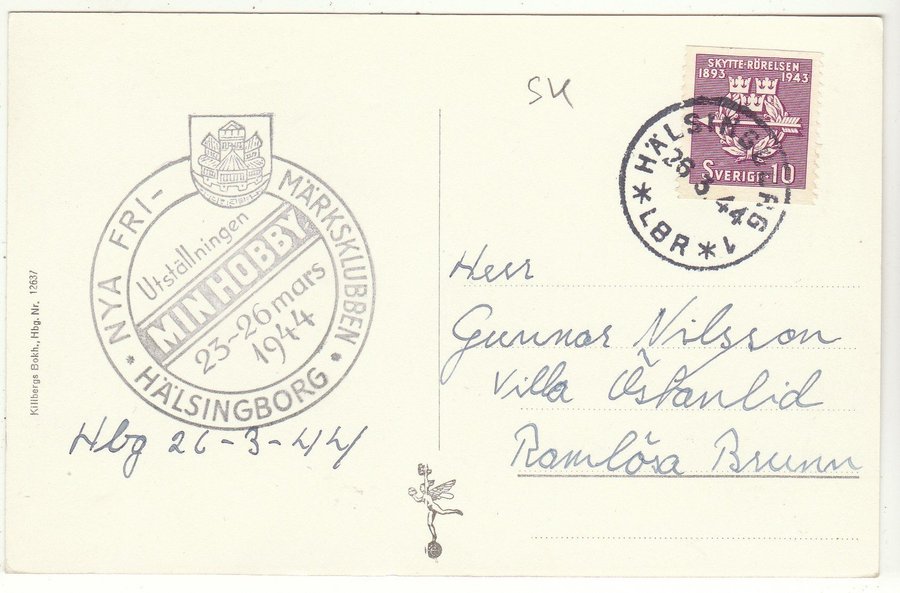 SKYTTE-RÖRELSEN
1893 1943
SVERIGE 10
HÄLSINGBORG 1
26 3 44
* LBR *
NYA FRI-MÄRKSKLUBBEN
Utställningen
MIN HOBBY
23-26 mars
1944
* HÄLSINGBORG *
Hbg 26-3-44
Herr
Gunnar Nilsson
Villa Östanlid
Ramlösa Brunn
Killbergs Bokh., Hbg. Nr. 12637